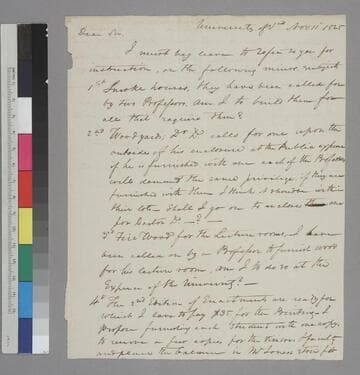 University of Va Nov 11 1825
Dear Sir,
I must beg leave to refer to you for
instruction, on the following minor subjects
1st Smoke houses, they have been called for
by two Professors. am I to build them for
all that require them?
2nd Woodyards; Dr D. calls for one upon the
outside of his enclosure at the Public expense
if he is furnished with one each of the Professors
will demand the same privilege, if they are
furnished with them I think it should be within
their lots. Shall I go on to enclose one
for Doctor D. — ? —
3d Fire Wood for the Lecture rooms, I have
been called on by a Professor to furnish wood
for his lecture room, am I to do so at the
Expense of the University? —
4th The 2nd Edition of Enactments are ready for
which I have to pay $35 for the Printing. I
propose furnishing each Student with one copy,
to reserve a few copies for the Visitors & faculty
and place the balance in Mr Jones's Store for